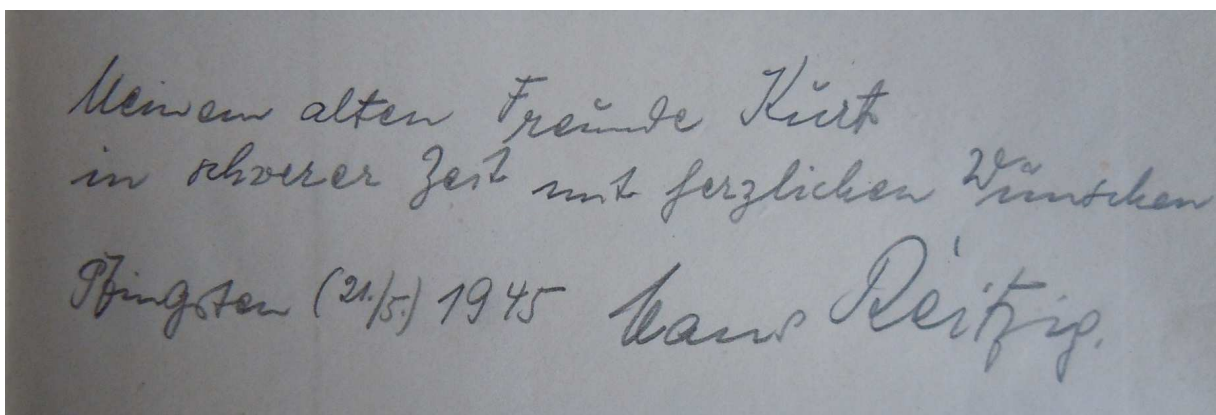 Meinem alten Freunde Kurt
in schwerer Zeit mit herzlichen Wünschen
Pfingsten (21./5.) 1945 Hans Reitzig.